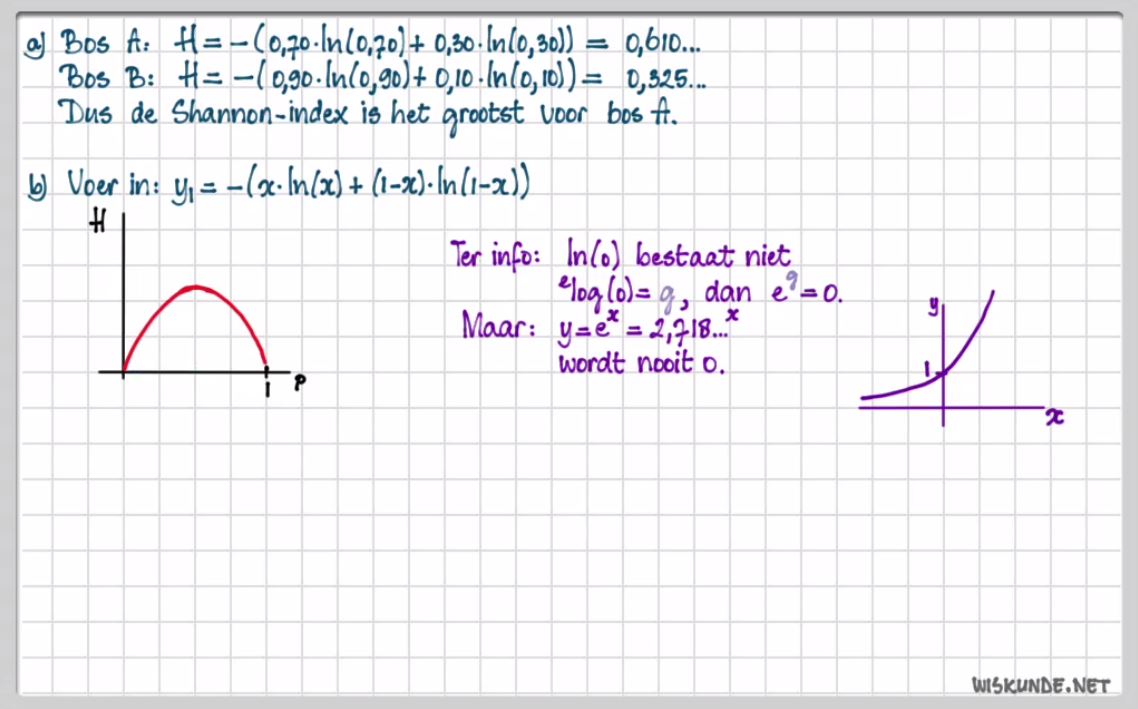 a) Bos A: H = -(0,70·ln(0,70) + 0,30·ln(0,30)) = 0,610...
Bos B: H = -(0,90·ln(0,90) + 0,10·ln(0,10)) = 0,325...
Dus de Shannon-index is het grootst voor bos A.
b) Voer in: y₁ = -(x·ln(x) + (1-x)·ln(1-x))
H
1
P
Ter info: ln(0) bestaat niet
ᵉlog(0) = g, dan eᵍ = 0.
Maar: y = eˣ = 2,718...ˣ
wordt nooit 0.
y
1
x
WISKUNDE.NET